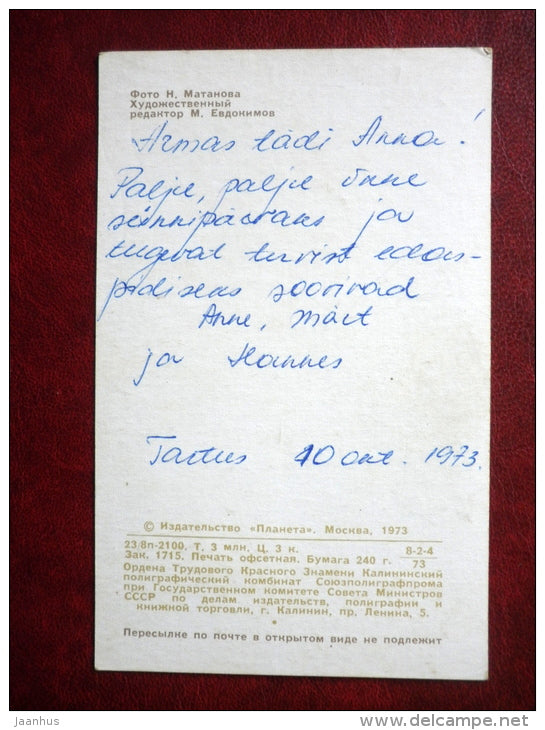 Фото Н. Матанова
Художественный
редактор М. Евдокимов
Armas tädi Anna!
Palju, palju õnne
sünnipäevaks ja
tugevat tervist edas-
pidiseks soovivad
Anne, Märt
ja Hannes
Tartus 10 okt. 1973.
© Издательство «Планета». Москва, 1973
23/8п-2100. Т. 3 млн. Ц. 3 к. 8-2-4
Зак. 1715. Печать офсетная. Бумага 240 г. 73
Ордена Трудового Красного Знамени Калининский
полиграфический комбинат Союзполиграфпрома
при Государственном комитете Совета Министров
СССР по делам издательств, полиграфии и
книжной торговли, г. Калинин, пр. Ленина, 5.
Пересылке по почте в открытом виде не подлежит
© Jaanhus
www.delcampe.net